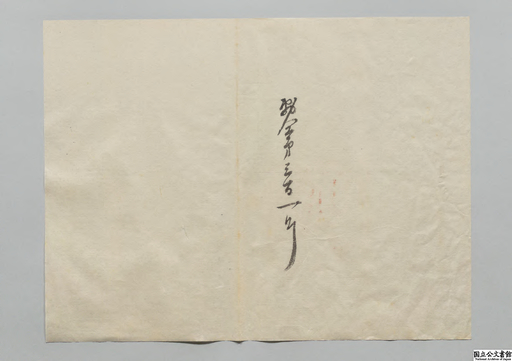 勅令第三百一号
国立公文書館
National Archives of Japan